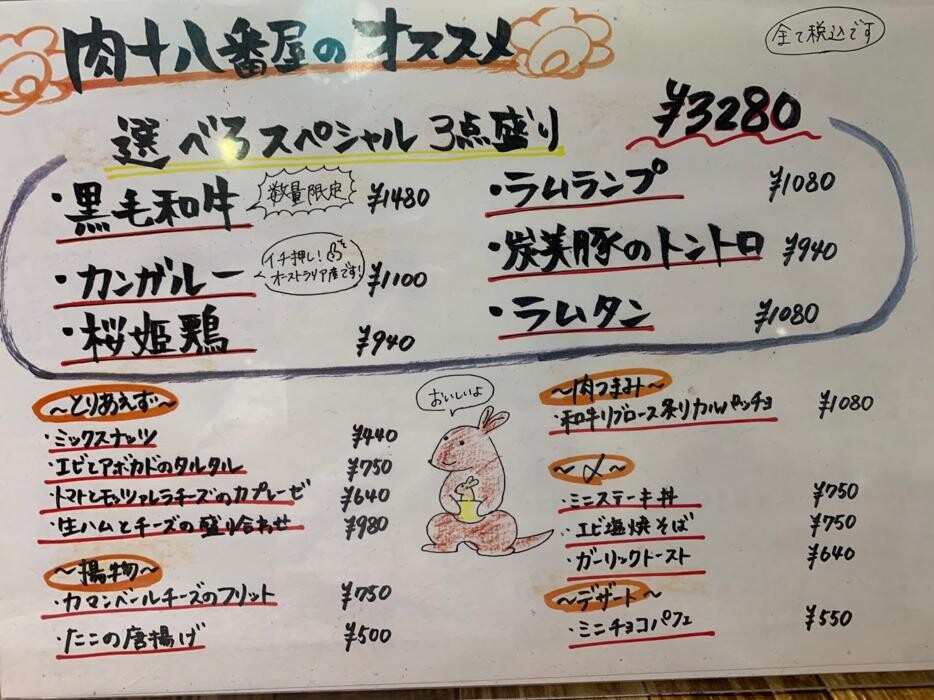 肉十八番屋のオススメ
全て税込です
選べるスペシャル3点盛り ¥3280
・黒毛和牛 数量限定 ¥1480
・カンガルー イチ押し! オーストラリア産です! ¥1100
・桜姫鶏 ¥940
・ラムランプ ¥1080
・炭美豚のトントロ ¥940
・ラムタン ¥1080
〜とりあえず〜
・ミックスナッツ ¥440
・エビとアボカドのタルタル ¥750
・トマトとモッツァレラチーズのカプレーゼ ¥640
・生ハムとチーズの盛り合わせ ¥980
〜揚物〜
・カマンベールチーズのフリット ¥750
・たこの唐揚げ ¥500
おいしいよ
〜肉つまみ〜
・和牛リブロース炙りカルパッチョ ¥1080
〜〆〜
・ミニステーキ丼 ¥750
・エビ塩焼そば ¥750
・ガーリックトースト ¥640
〜デザート〜
・ミニチョコパフェ ¥550